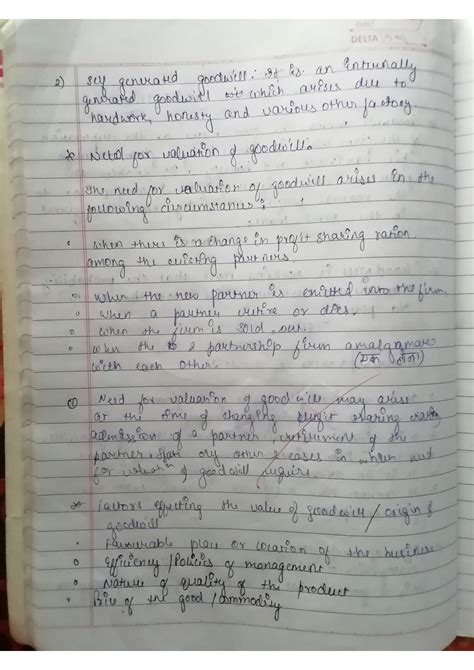 DELTA
2) Self generated goodwill: It is an internally
generated goodwill which arises due to
hardwork, honesty and various other factory
Need for valuation of goodwill.
The need for valuation of goodwill arises in the
following circumstances:
• when there is a change in profit sharing ration
among the existing partners.
• When the new partner is emitted into the firm
• when a partner retire or dies.
• when the firm is sold out.
• when the 2 partnership firm amalgamate
with each other. (एक होना)
Need for valuation of goodwill may arise
at the time of changing profit sharing
admission of a partner, retirement of the
partner, other cases in which
for valuation of goodwill require.
* Factors effecting the value of goodwill / origin of
goodwill
• Favourable place or location of the business
• Efficiency / Policies of management
• Nature of quality of the product
• of the good / commodity